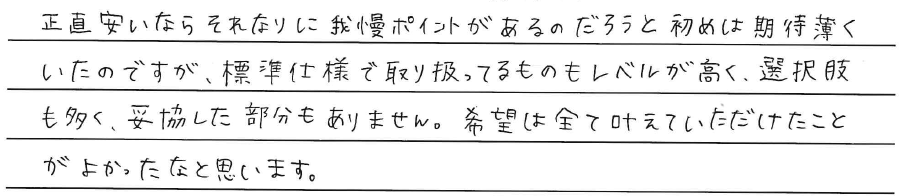 正直安いならそれなりに我慢ポイントがあるのだろうと初めは期待薄く
いたのですが、標準仕様で取り扱ってるものもレベルが高く、選択肢
も多く、妥協した部分もありません。希望は全て叶えていただけたこと
がよかったなと思います。